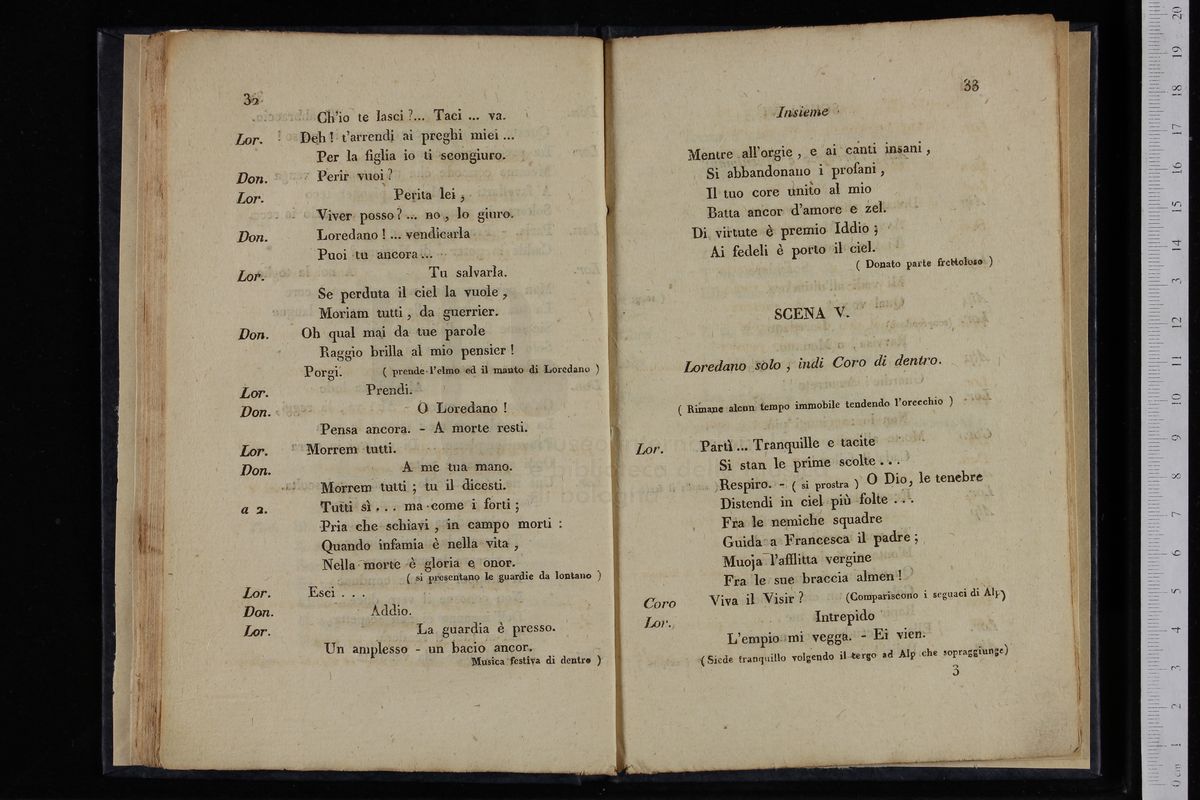 32
Ch'io te lasci ?... Taci ... va.
Lor. Deh ! t'arrendi ai preghi miei ...
Per la figlia io ti scongiuro.
Don. Perir vuoi ?
Lor. Perita lei ,
Viver posso ? ... no , lo giuro.
Don. Loredano ! ... vendicarla
Puoi tu ancora ...
Lor. Tu salvarla.
Se perduta il ciel la vuole ,
Moriam tutti , da guerrier.
Don. Oh qual mai da tue parole
Raggio brilla al mio pensier !
Porgi. ( prende l'elmo ed il manto di Loredano )
Lor. Prendi.
Don. O Loredano !
Pensa ancora. - A morte resti.
Lor. Morrem tutti.
Don. A me tua mano.
Morrem tutti ; tu il dicesti.
a 2. Tutti sì . . . ma come i forti ;
Pria che schiavi , in campo morti :
Quando infamia è nella vita ,
Nella morte è gloria e onor.
( si presentano le guardie da lontano )
Lor. Esci . . .
Don. Addio.
Lor. La guardia è presso.
Un amplesso - un bacio ancor.
Musica festiva di dentro )
33
Insieme
Mentre all'orgie , e ai canti insani ,
Si abbandonano i profani ,
Il tuo core unito al mio
Batta ancor d'amore e zel.
Di virtute è premio Iddio ;
Ai fedeli è porto il ciel.
( Donato parte frettoloso )
SCENA V.
Loredano solo , indi Coro di dentro.
( Rimane alcun tempo immobile tendendo l'orecchio )
Lor. Partì ... Tranquille e tacite
Si stan le prime scolte . . .
Respiro. - ( si prostra ) O Dio, le tenebre
Distendi in ciel più folte . . .
Fra le nemiche squadre
Guida a Francesca il padre ;
Muoja l'afflitta vergine
Fra le sue braccia almen !
Coro Viva il Visir ? (Compariscono i seguaci di Alp)
Lor. Intrepido
L'empio mi vegga. - Ei vien.
( Siede tranquillo volgendo il tergo ad Alp che sopraggiunge)
3
museo internazionale
e biblioteca
di bologna
0 cm 1 2 3 4 5 6 7 8 9 10 11 12 13 14 15 16 17 18 19 20